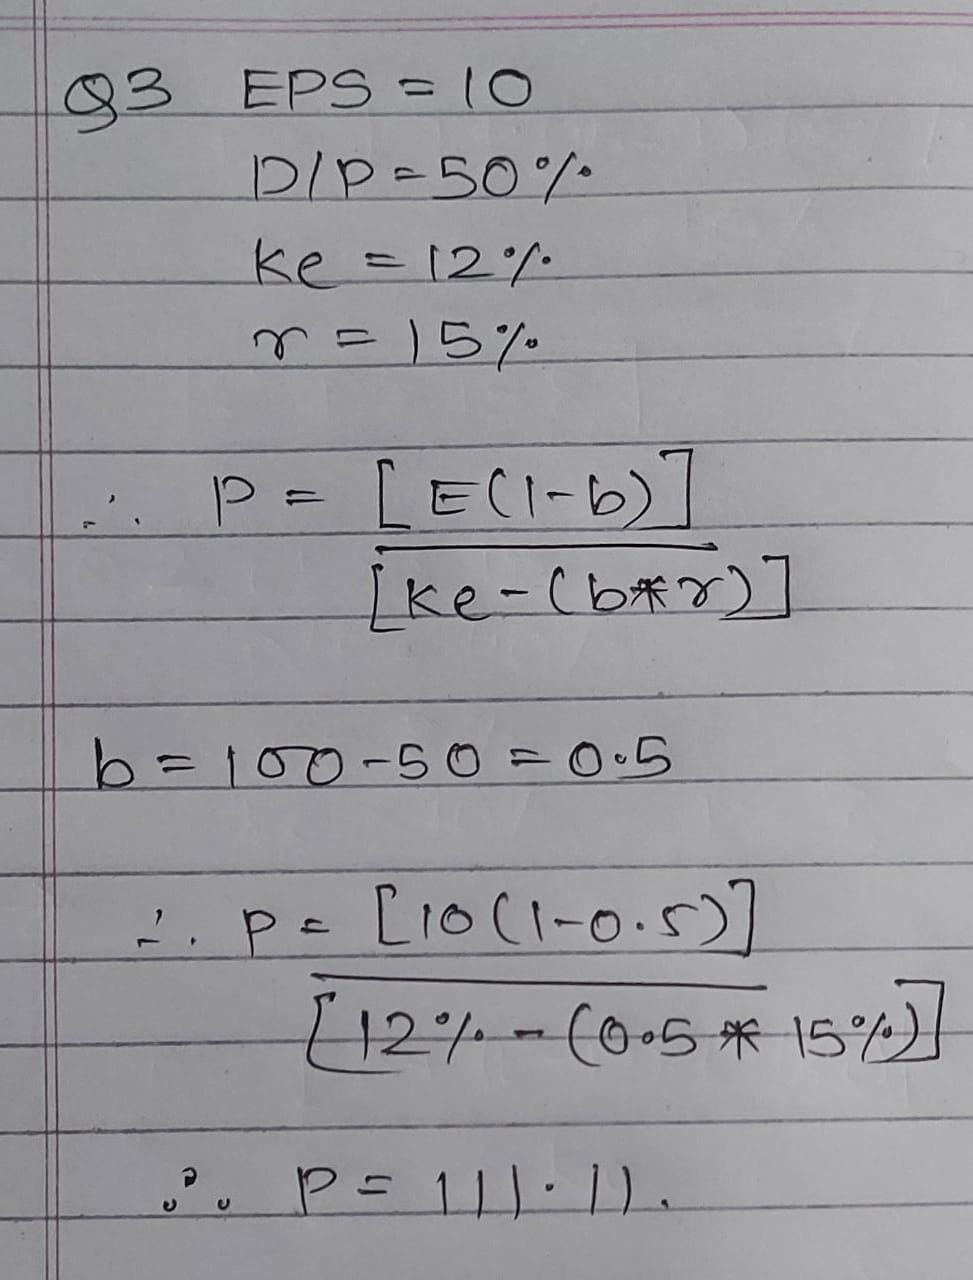 Q3 EPS = 10
D/P = 50%
Ke = 12%
r = 15%
∴ P = [E(1-b)]
[Ke-(b*r)]
b = 100-50 = 0.5
∴ P = [10(1-0.5)]
[12% - (0.5 * 15%)]
∴ P = 111.11.